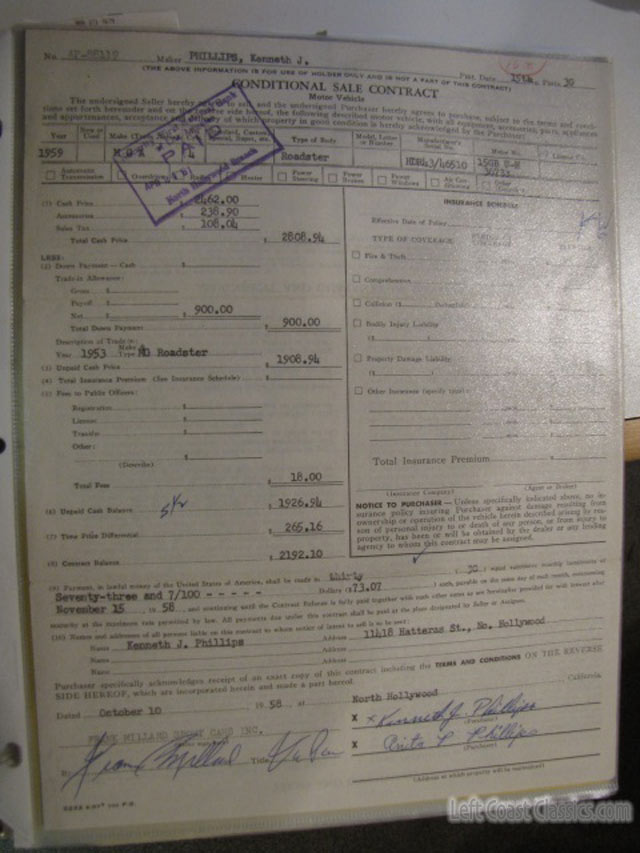 No. AP-88119 Maker PHILLIPS, Kenneth J.
(THE ABOVE INFORMATION IS FOR USE OF HOLDER ONLY AND IS NOT A PART OF THIS CONTRACT) Pmt. Date 15th No. Pmts. 30
CONDITIONAL SALE CONTRACT
Motor Vehicle
The undersigned Seller hereby agrees to sell, and the undersigned Purchaser hereby agrees to purchase, subject to the terms and conditions set forth hereunder and on the reverse side hereof, the following described motor vehicle, with all equipment, accessories, parts,
and appurtenances, acceptance and delivery of which property in good condition is hereby acknowledged by the Purchaser:
Year New or Used Make Type of Body Model, Letter or Number Manufacturer's Serial No. Motor No. License No.
1959 M G A 4 Roadster HDR43/46510
PAID
North Hollywood Branch
Automatic Transmission Overdrive Heater Power Steering Power Brakes Power Windows Air Conditioning Other
(1) Cash Price $2462.00
Accessories 238.90
Sales Tax 108.04
Total Cash Price $ 2808.94
LESS:
(2) Down Payment — Cash $
Trade-in Allowance:
Gross $
Payoff $
Net $ 900.00
Total Down Payment $ 900.00
Description of Trade-in:
Year 1953 Make & Type MG Roadster
(3) Unpaid Cash Price $ 1908.94
(4) Total Insurance Premium (See Insurance Schedule) $
(5) Fees to Public Officers:
Registration $
License
Transfer
Other:
(Describe)
Total Fees $ 18.00
(6) Unpaid Cash Balance $ 1926.94
(7) Time Price Differential $ 265.16
(8) Contract Balance $ 2192.10
INSURANCE SCHEDULE
Effective Date of Policy
TYPE OF COVERAGE
Fire & Theft
Comprehensive
Collision ($ Deductible)
Bodily Injury Liability
($
Property Damage Liability
($
Other Insurance (specify
Total Insurance Premium $
(Insurance Company) (Agent or Dealer)
NOTICE TO PURCHASER — Unless specifically indicated above, no insurance policy insuring Purchaser against damage resulting from
ownership or operation of the vehicle herein described arising by reason of personal injury to or death of any person, or from injury to
property, has been or will be obtained by the dealer or any lending
agency to whom this contract may be assigned.
(9) Payment, in lawful money of the United States of America, shall be made in thirty ( 30 ) equal successive monthly instalments of
Seventy-three and 7/100 - - - - - Dollars ($73.07 ) each, payable on the same day of each month, commencing
November 15 , 19 58 , and continuing until the Contract Balance is fully paid together with such other sums as are hereinafter provided for with interest after
maturity at the maximum rate permitted by law. All payments due under this contract shall be paid at the place designated by Seller or Assignee.
(10) Names and addresses of all persons liable on this contract to whom notice of intent to sell is to be sent:
Name Kenneth J. Phillips Address 11418 Hatteras St., No. Hollywood
Name Address
Name Address
Purchaser specifically acknowledges receipt of an exact copy of this contract including the TERMS AND CONDITIONS ON THE REVERSE
SIDE HEREOF, which are incorporated herein and made a part hereof.
Dated October 10 19 58 at North Hollywood , California.
FRANK MILLARD SPORT CARS INC.
X x Kenneth J Phillips
(Purchaser)
X Anita P Phillips
(Purchaser)
By Frank Millard Title
(Address at which property will be
LeftCoastClassics.com